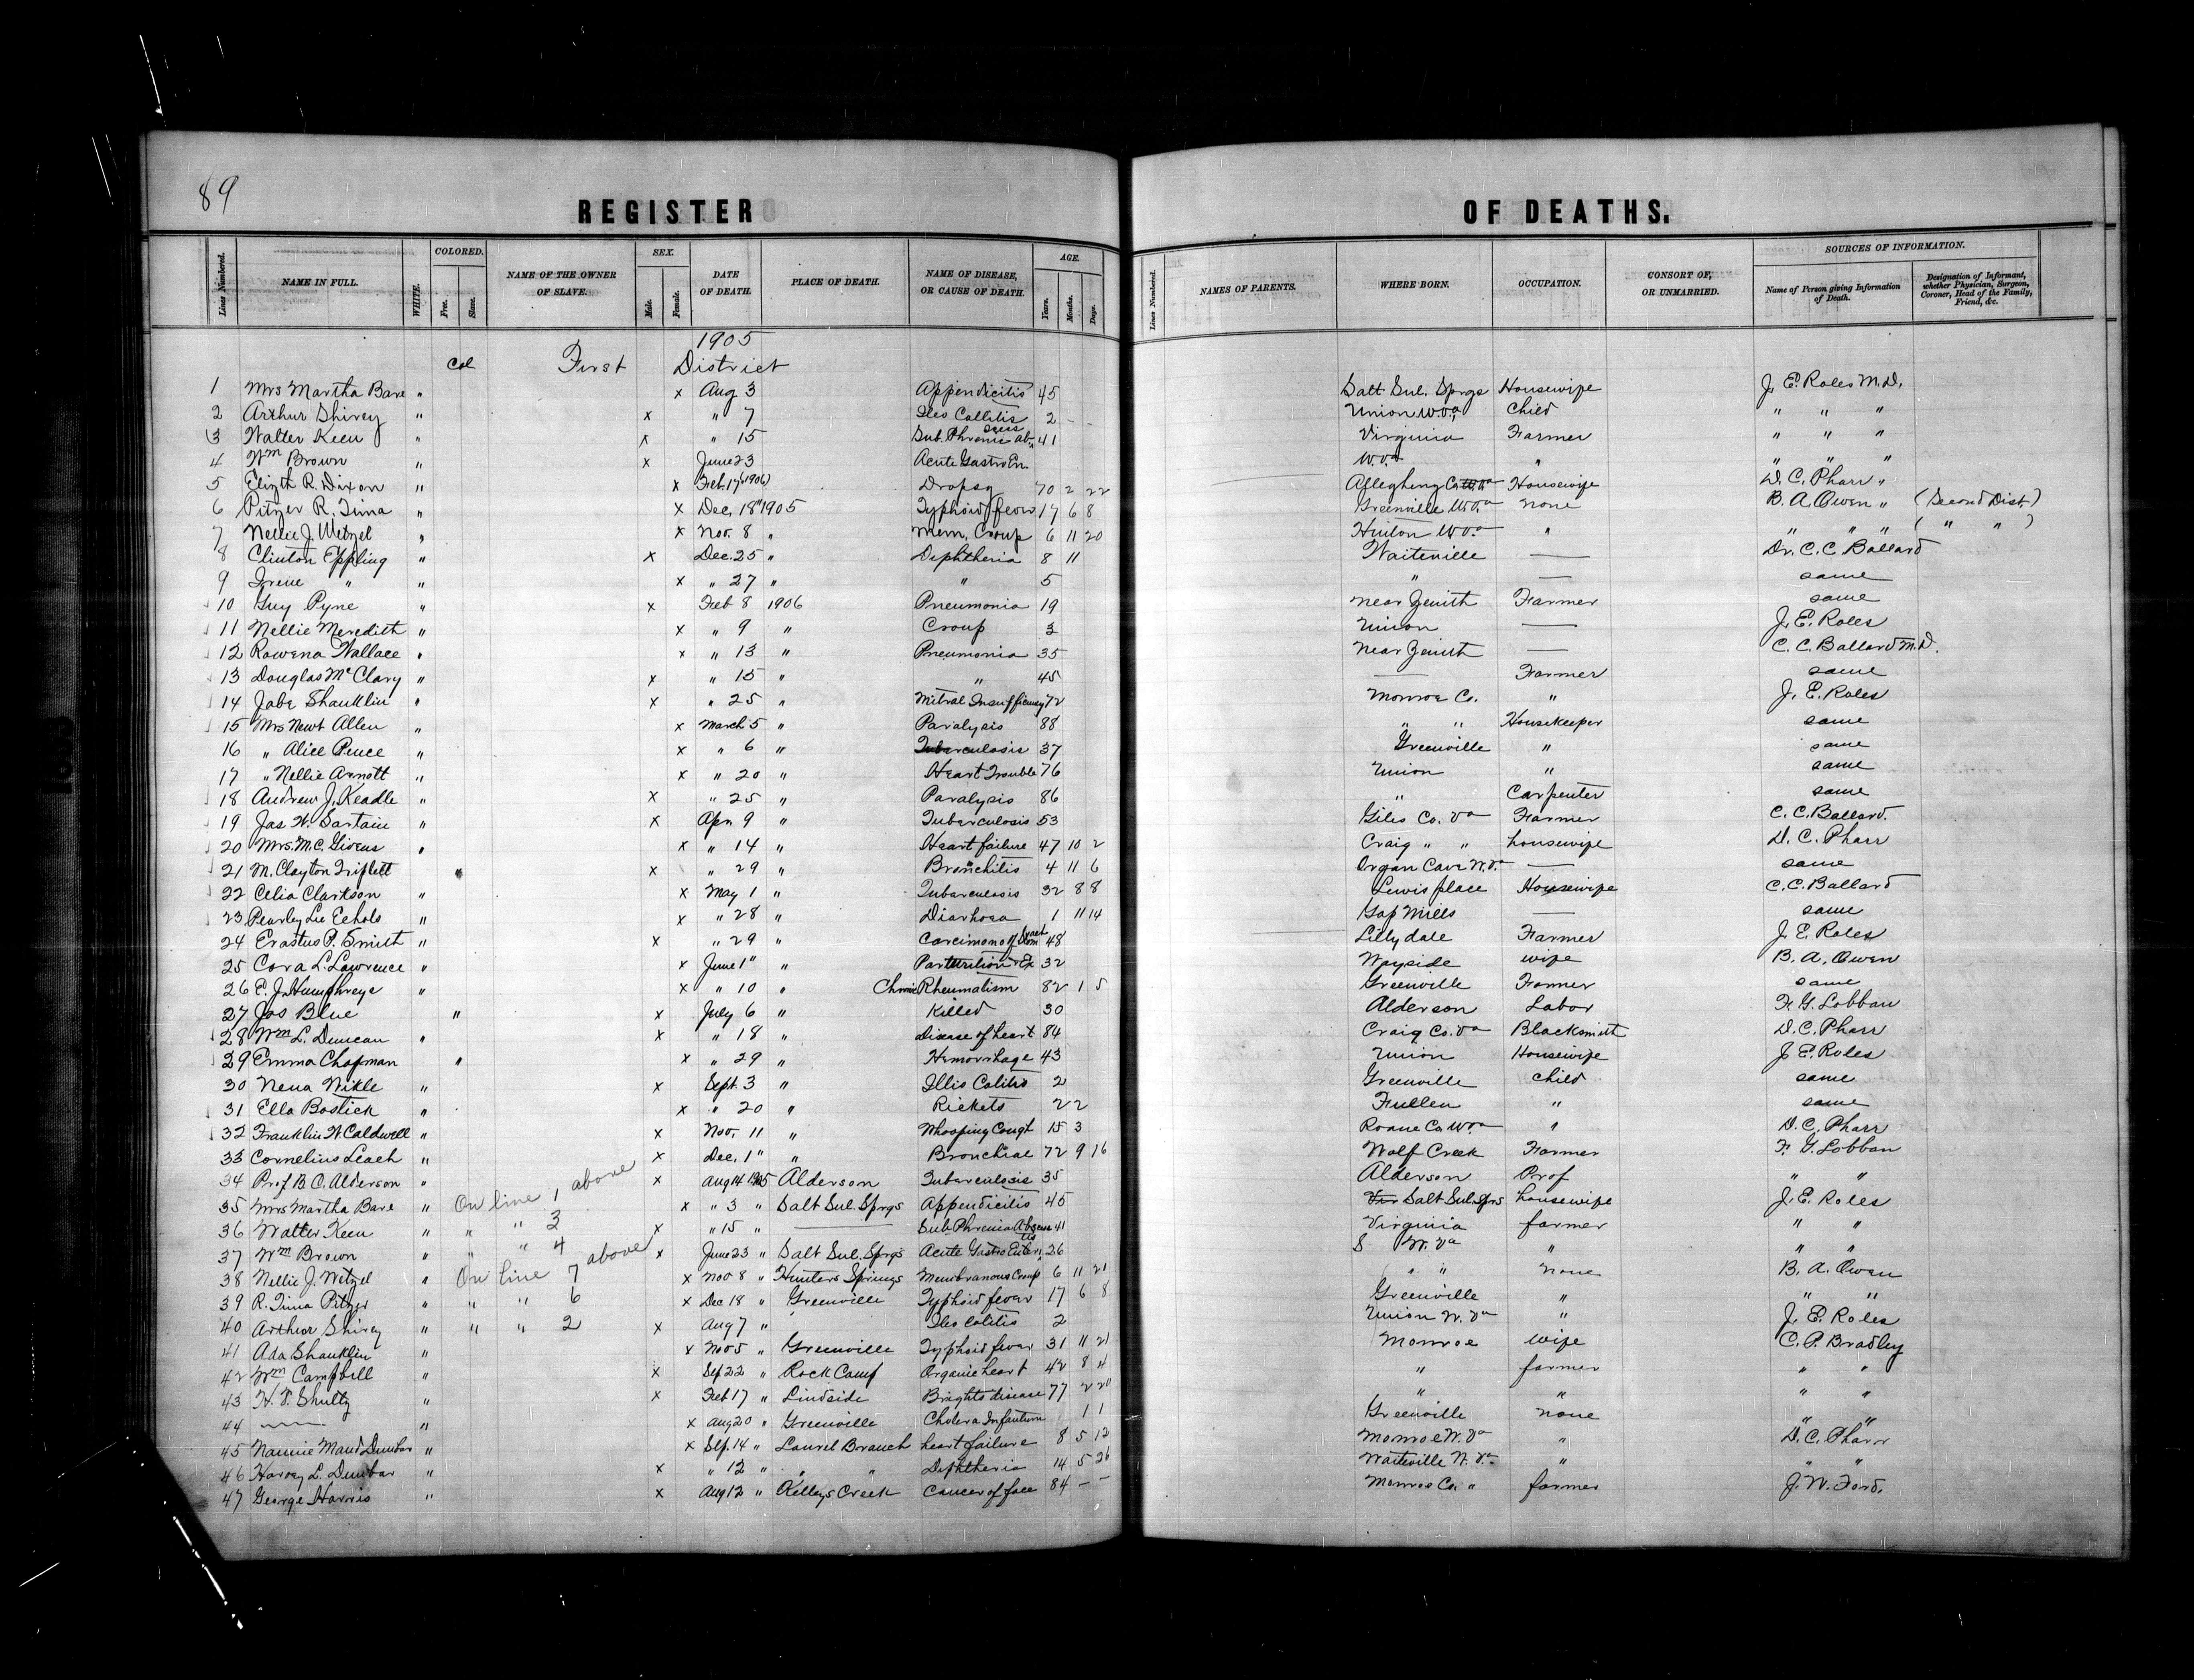 89
REGISTER OF DEATHS.
Lines Numbered. NAME IN FULL. WHITE. COLORED. Free. Slave. NAME OF THE OWNER OF SLAVE. SEX. Male. Female. DATE OF DEATH. PLACE OF DEATH. NAME OF DISEASE, OR CAUSE OF DEATH. AGE. Years. Months. Days. Lines Numbered. NAMES OF PARENTS. WHERE BORN. OCCUPATION. CONSORT OF, OR UNMARRIED. SOURCES OF INFORMATION. Name of Person giving Information of Death. Designation of Informant, whether Physician, Surgeon, Coroner, Head of the Family, Friend, &c.
1905
Col First District
1 Mrs Martha Bare " x Aug 3 Appendicitis 45 Salt Sul. Sprgs Housewife J. E. Roles M.D.
2 Arthur Shirey " x " 7 Ileo Collitis 2 - - Union W.Va Child " " "
3 Walter Keen " x " 15 Sub. Phrenic abscess 41 Virginia Farmer " " "
4 Wm Brown " x June 23 Acute Gastro En. W.Va " " " "
5 Elizth R. Dixon " x Feb. 17 (1906) Dropsy 70 2 22 Allegheny Co. Housewife D. C. Pharr "
6 Pitzer R. Tima " x Dec. 18" 1905 Typhoid fever 17 6 8 Greenville W.Va none B. A. Owen " (Second Dist.)
7 Nellie J. Wetzel " x Nov. 8 " Mem. Croup 6 11 20 Hinton W Va " " " " ( " " )
8 Clinton Eppling " x Dec. 25 " Diphtheria 8 11 Waiteville — Dr. C. C. Ballard
9 Irene " " x " 27 " " 5 " — same
10 Guy Pyne " x Feb 8 1906 Pneumonia 19 near Zenith Farmer same
11 Nellie Meredith " x " 9 " Croup 3 Union — J. E. Roles
12 Rowena Wallace " x " 13 " Pneumonia 35 Near Zenith — C. C. Ballard M.D.
13 Douglas McClary " x " 15 " " 45 — Farmer same
14 Jabe Shanklin " x " 25 " Mitral Insufficiency 72 Monroe Co. " J. E. Roles
15 Mrs Newt Allen " x March 5 " Paralysis 88 " " Housekeeper same
16 " Alice Pence " x " 6 " Tuberculosis 37 Greenville " same
17 " Nellie Arnott " x " 20 " Heart Trouble 76 Union " same
18 Andrew J. Keadle " x " 25 " Paralysis 86 " Carpenter same
19 Jas W. Sartain " x Apr. 9 " Tuberculosis 53 Giles Co. Va Farmer C. C. Ballard.
20 Mrs. M. C. Givens " x " 14 " Heart failure 47 10 2 Craig " " housewife D. C. Pharr
21 M. Clayton Triplett " x " 29 " Bronchitis 4 11 6 Organ Cave W.Va — same
22 Celia Clarkson " x May 1 " Tuberculosis 32 8 8 Lewis place Housewife C. C. Ballard
23 Pearley Lee Echols " x " 28 " Diarhoea 1 11 14 Gap Mills — same
24 Erastus P. Smith " x " 29 " Carcimono of Stomach 48 Lillydale Farmer J. E. Roles
25 Cora L. Lawrence " x June 1" " Parturition & Ex 32 Wayside wife B. A. Owen
26 E. J. Humphreys " x " 10 " Chronic Rheumatism 82 1 5 Greenville Farmer same
27 Jos Blue " x July 6 " Killed 30 Alderson Labor F. G. Lobban
28 Wm L. Duncan " x " 18 " disease of heart 84 Craig Co. Va Blacksmith D. C. Pharr
29 Emma Chapman " x " 29 " Hemorrhage 43 Union Housewife J. E. Roles
30 Nena Wikle " x Sept. 3 " Illio Colitis 2 Greenville child same
31 Ella Bostick " x " 20 " Rickets 22 Fullen " same
32 Franklin W. Caldwell " x Nov. 11 " Whooping Cough 15 3 Roane Co. W Va " D. C. Pharr
33 Cornelius Leach " x Dec. 1" " Bronchial 72 9 16 Wolf Creek Farmer F. G. Lobban
34 Prof B. C. Alderson " x Aug 14 1905 Alderson Tuberculosis 35 Alderson Prof " "
35 Mrs Martha Bare " On line 1 above x " 3 " Salt Sul. Sprgs Appendicitis 45 Salt Sul. Sprs housewife J. E. Roles
36 Walter Keen " " " 3 x " 15 " — Sub Phrenia Abscess 41 Virginia farmer " "
37 Wm Brown " " " 4 x June 23 " Salt Sul. Sprgs Acute Gastro Enteritis 26 S W. Va " " "
38 Nellie J. Wetzel " On line 7 above x Nov 8 " Hunters Springs Membranous Croup 6 11 21 " " none B. A. Owen
39 R. Tima Pitzer " " " 6 x Dec 18 " Greenville Typhoid fever 17 6 8 Greenville " " "
40 Arthur Shirey " " " 2 x Aug 7 " Ileo Colitis 2 Union W. Va " J. E. Roles
41 Ada Shanklin " x Nov 5 " Greenville Typhoid fever 31 11 21 Monroe wife C. P. Bradley
42 Wm Campbell " x Sep 22 " Rock Camp Organic heart 42 8 4 " farmer " "
43 H. T. Shultz " x Feb 17 " Lindside Brights disease 77 2 20 " " " "
44 — " x Aug 20 " Greenville Cholera Infantum 1 1 Greenville none " "
45 Nannie Maud Dunbar " x Sep. 14 " Laurel Branch heart failure 8 5 12 Monroe W. Va " D. C. Pharr
46 Harvey L. Dunbar " x " 12 " " " Diphtheria 14 5 26 Waiteville W. Va " " "
47 George Harris " x Aug 12 " Kellys Creek Cancer of face 84 - - Monroe Co. " farmer J. W. Ford.